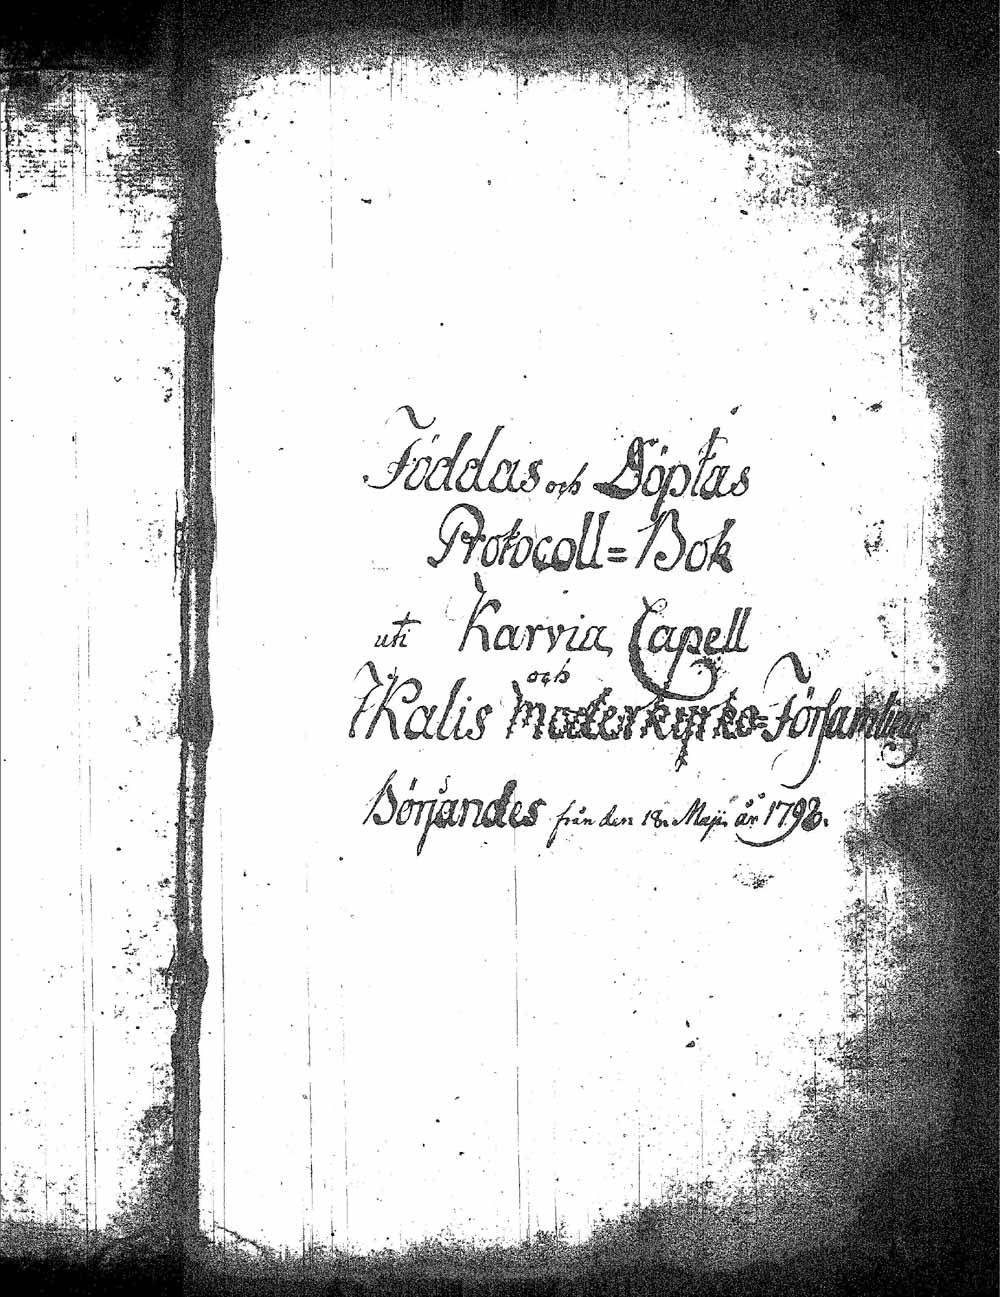 Föddas och Döptas
Protocoll=Bok
uti Karvia Capell
och
Ikalis Moderkyrko=Församling
Börjandes från den 18. Maji år 1798.